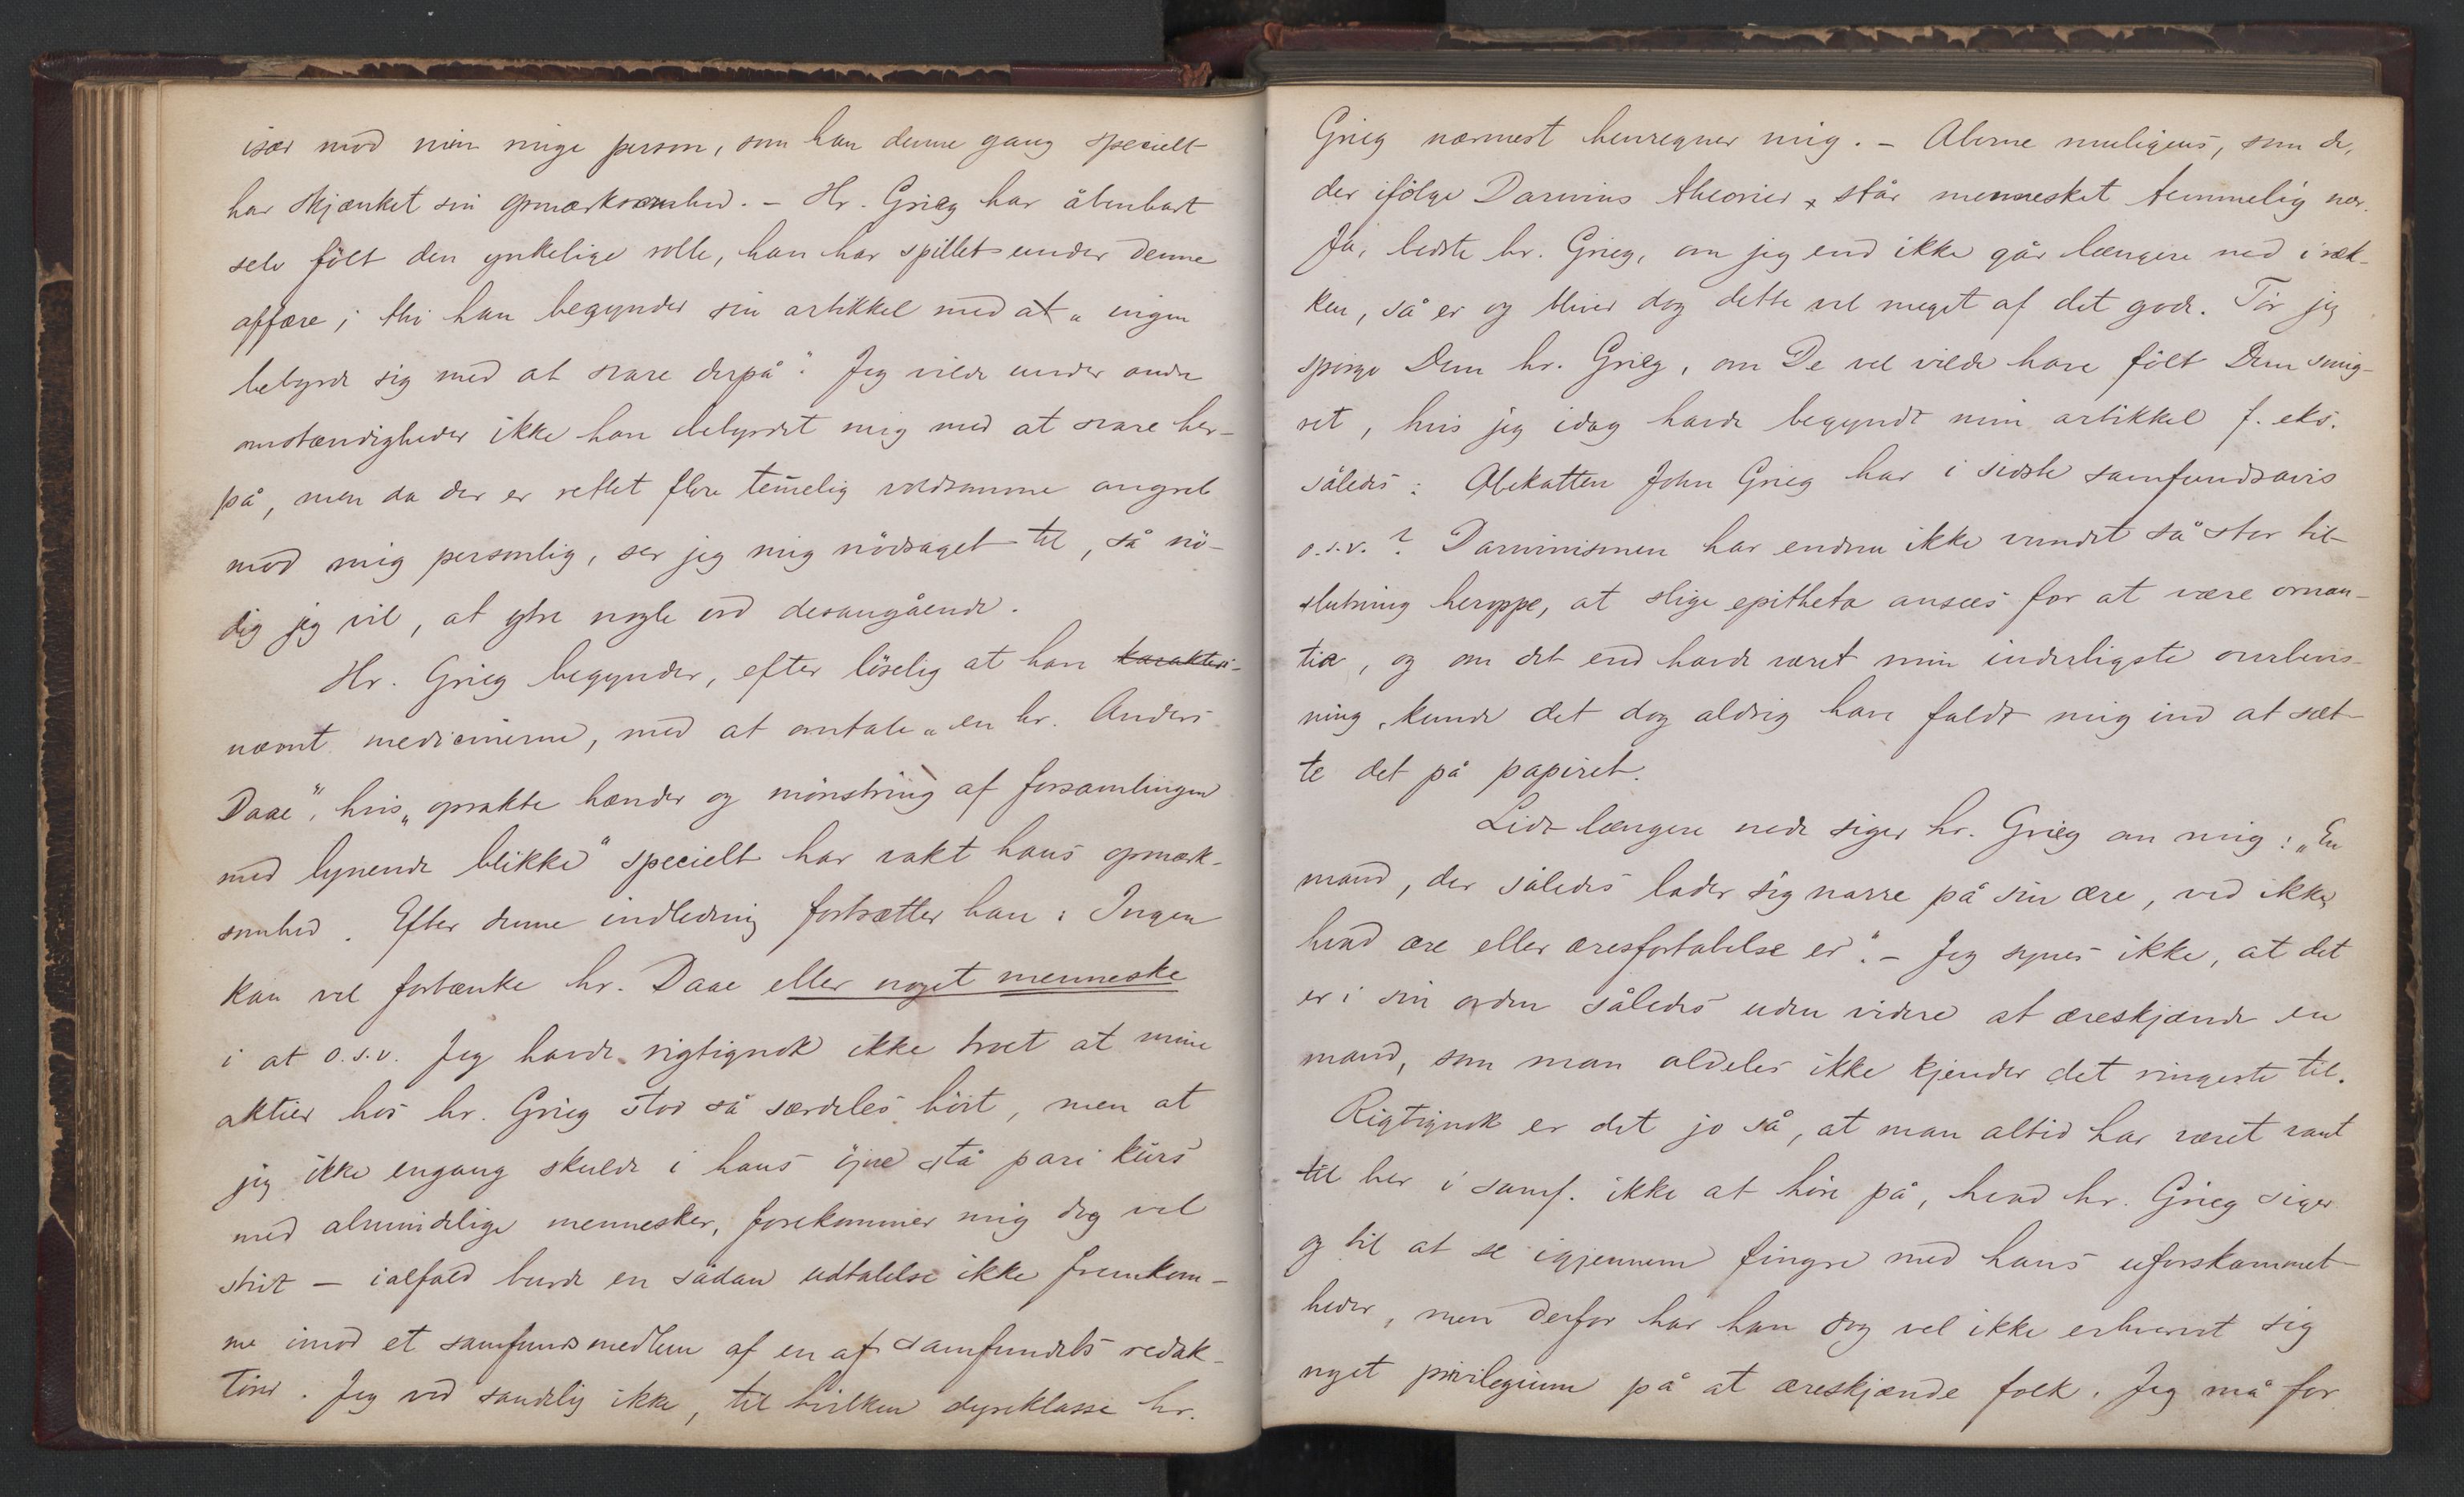 især mod min ringe person, som han denne gang specielt
har skjænket sin opmærksomhed. – Hr. Grieg har åbenbart
selv fölt den ynkelige rolle, han har spillet under denne
affære; thi han begynder sin artikkel med at „ingen
bebyrde sig med at svare derpå“. Jeg vilde under andre
omstændigheder ikke have bebyrdet mig med at svare her-
på, men da der er rettet flere tem̄elig voldsomme angreb
mod mig personlig, ser jeg mig nödsaget til, så nö-
dig jeg vil, at ytre nogle ord desangående.
Hr. Grieg begynder, efter löselig at have karakteri-
nævnt medicinerne, med at omtale „en hr. Anders
Daae“, hvis „oprakte hænder og mönstring af forsamlingen
med lynende blikke“ specielt har vakt hans opmærk-
somhed. Efter denne indledning fortsætter han: Ingen
kan vel fortænke hr. Daae eller noget menneske
i at o.s.v. Jeg havde rigtignok ikke troet at mine
aktier hos hr. Grieg stod så særdeles höit, men at
jeg ikke engang skulde i hans öjne stå pari kurs
med almindelige mennesker, forekommer mig dog vel
stivt – ialfald burde en sådan udtalelse ikke fremkom-
me imod et samfundsmedlem af en af samfundets redak-
törer. Jeg ved sandelig ikke, til hvilken dyreklasse hr.
Grieg nærmest henregner mig. – Aberne muligens, som de,
der ifölge Darwins theorier, står mennesket temmelig nær.
Ja, bedste hr. Grieg, om jeg end ikke går længere ned i ræk-
ken, så er og bliver dog dette vel meget af det gode. Tör jeg
spörge Dem hr. Grieg, om De vel vilde have fölt Dem smig-
ret, hvis jeg idag havde begyndt min artikkel f. eks.
således: Abekatten John Grieg har i sidste samfundsavis
o.s.v.? Darwinismen har endnu ikke vundet så stor til-
slutning heroppe, at slige epitheta ansees for at være ornan-
tia, og om det end havde været min inderligste overbevis-
ning, kunde det dog aldrig have faldt mig ind at sæt-
te det på papiret.
Lidt længere nede siger hr. Grieg om mig: „En
mand, der således lader sig narre på sin ære, ved ikke,
hvad ære eller æresfortabelse er“. – Jeg synes ikke, at det
er i sin orden således uden videre at æreskjænde en
mand, som man aldeles ikke kjender det ringeste til.
Rigtignok er det jo så, at man altid har været vant
til her i samf. ikke at höre på, hvad hr. Grieg siger
og til at se igjennem fingre med hans uforskammet-
heder, men derfor har han dog vel ikke erhvervet sig
noget privilegium på at æreskjænde folk. Jeg må for